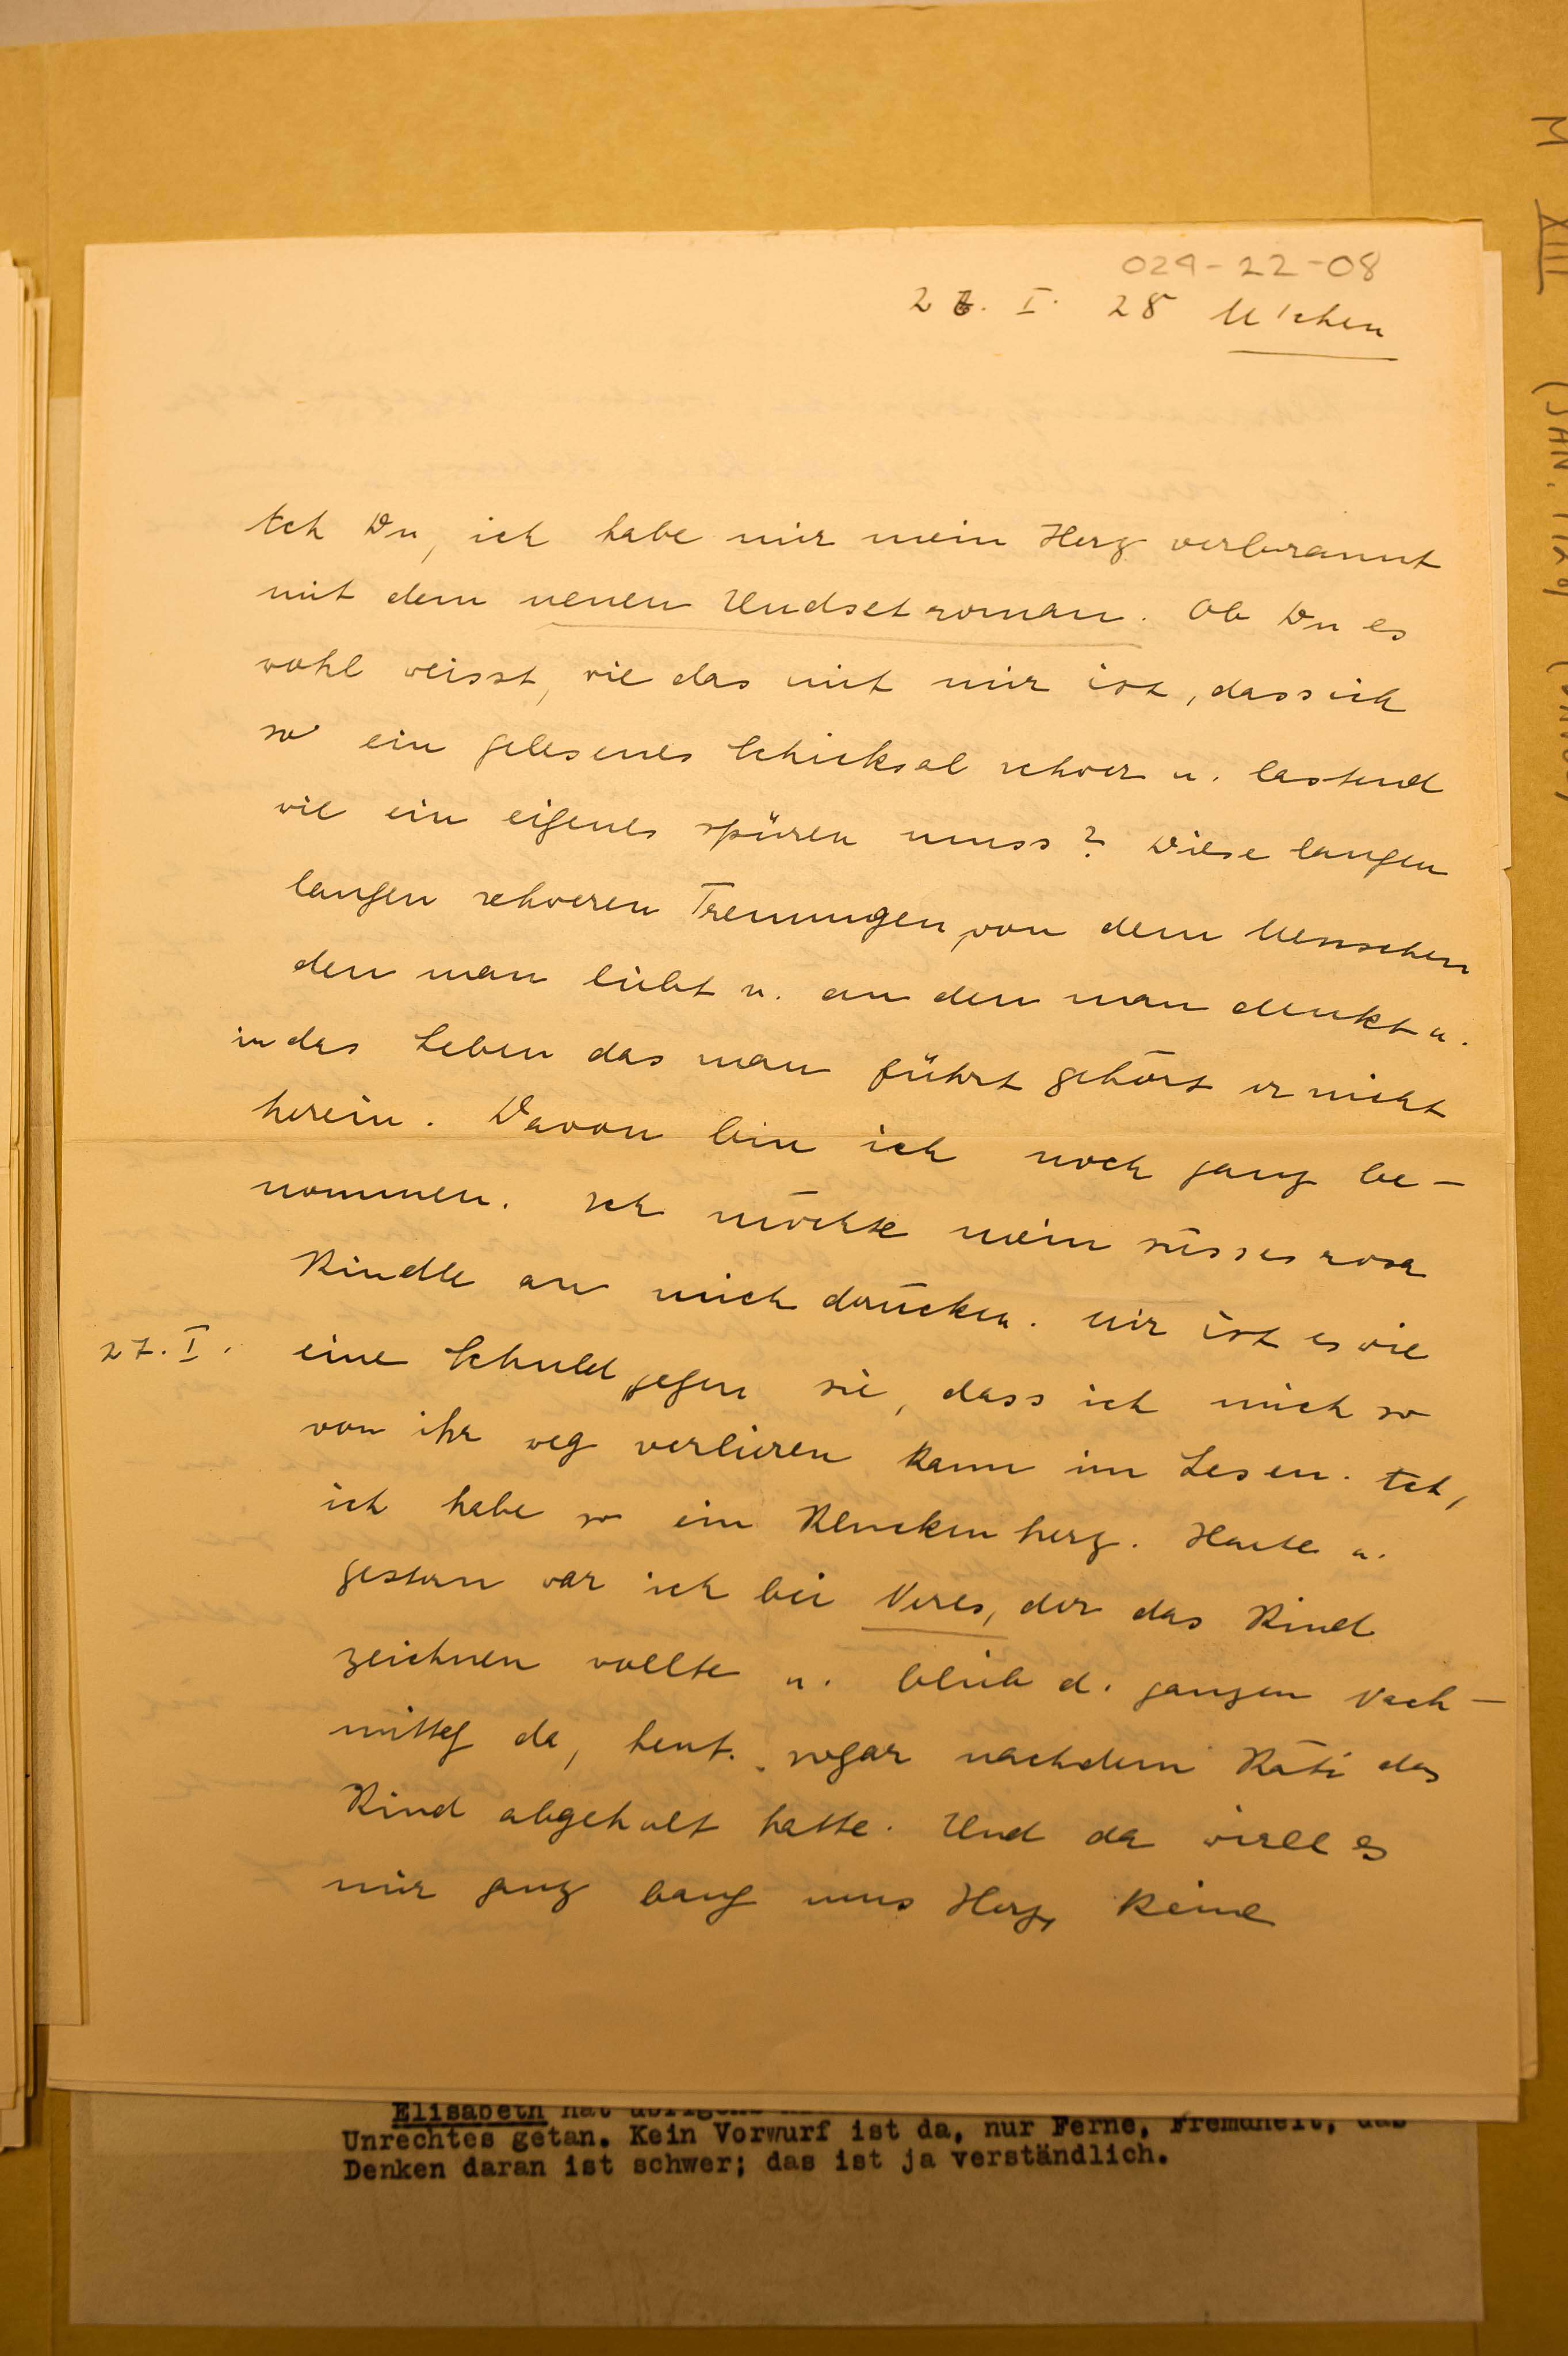 029-22-08
26. I. 28 M'chen
Ach Du, ich habe mir mein Herz verbrannt
mit dem neuen Undsetroman. Ob Du es
wohl weisst, wie das mit mir ist, dass ich
so ein gelesenes Schicksal schwer u. lastend
wie ein eigenes spüren muss? Diese langen
langen schweren Trennungen, von dem Menschen
den man liebt u. an den man denkt u.
in das Leben das man führt gehört er nicht
herein. Davon bin ich noch ganz be-
nommen. Ich möchte mein süsses rosa
Kindle an mich drücken. Mir ist es wie
27. I. eine Schuld gegen sie, dass ich mich so
von ihr weg verlieren kann im Lesen. Ach,
ich habe so ein Kluckenherz. Heute u.
gestern war ich bei Veres, der das Kind
zeichnen wollte u. blieb d. ganzen Nach-
mittag da, heut. sogar nachdem Käti das
Kind abgeholt hatte. Und da wird es
mir ganz bang ums Herz, keine
M XIII
(JAN.
Elisabeth hat
Unrechtes getan. Kein Vorwurf ist da, nur Ferne, Fremdheit, das
Denken daran ist schwer; das ist ja verständlich.